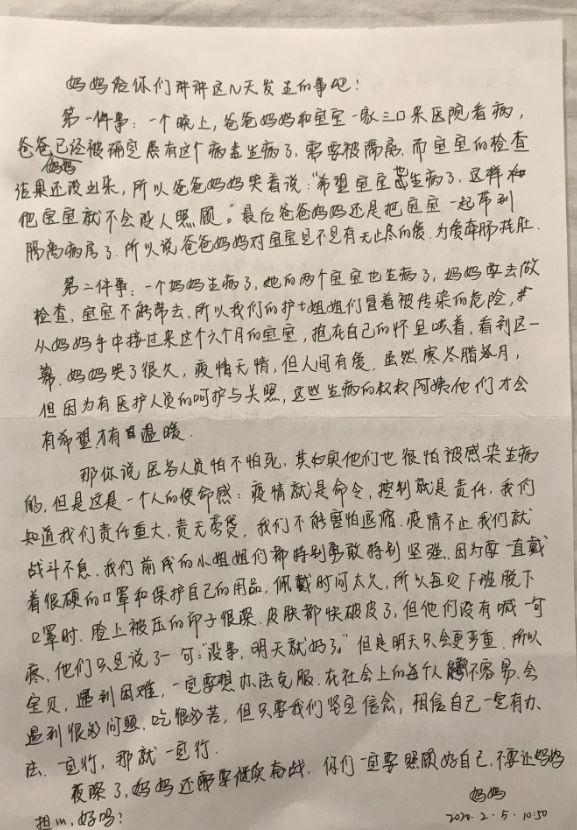 妈妈给你们讲讲这几天发生的事吧!
第一件事:一个晚上,爸爸妈妈和宝宝一家三口来医院看病,
爸爸妈妈已经被确定患有这个病毒生病了,需要被隔离,而宝宝的检查
结果还没出来,所以爸爸妈妈哭着说:“希望宝宝生病了,这样
他宝宝就不会没人照顾。”最后爸爸妈妈还是把宝宝一起带到
隔离病房了.所以说爸爸妈妈对宝宝是不是有无止尽的爱.为爱牵肠挂肚.
第二件事:一个妈妈生病了,她的两个宝宝也生病了,妈妈要去做
检查,宝宝不能带去,所以我们的护士姐姐们冒着被传染的危险,
从妈妈手中接过来这个六个月的宝宝,抱在自己的怀里哄着,看到这一
幕.妈妈哭了很久,疫情无情,但人间有爱.虽然寒冬腊月,
但因为有医护人员的呵护与关照,这些生病的叔叔阿姨他们才会
有希望才有温暖.
那你说医务人员怕不怕死,其实他们也很怕被感染生病
的,但是这是一个人的使命感:疫情就是命令,控制就是责任,我们
知道我们责任重大,责无旁贷,我们不能害怕退缩.疫情不止,我们就
战斗不息.我们前线的小姐姐们都特别勇敢特别坚强.因为要一直戴
着很硬的口罩和保护自己的用品,佩戴时间太久,所以每次下班脱下
口罩时.脸上被压的印子很深.皮肤都快破皮了,但他们没有喊一句
疼,他们只是说了一句:“没事,明天就好了。”但是明天只会更严重.所以
宝贝,遇到困难,一定要想办法克服.在社会上的每个人都不容易.会
遇到很多问题.吃很多苦,但只要我们坚定信念,相信自己一定有办
法.一定行,那就一定行.
夜深了,妈妈还要继续奋战.你们一定要照顾好自己.不要让妈妈
担心,好吗?
妈妈
2020.2.5.10:50